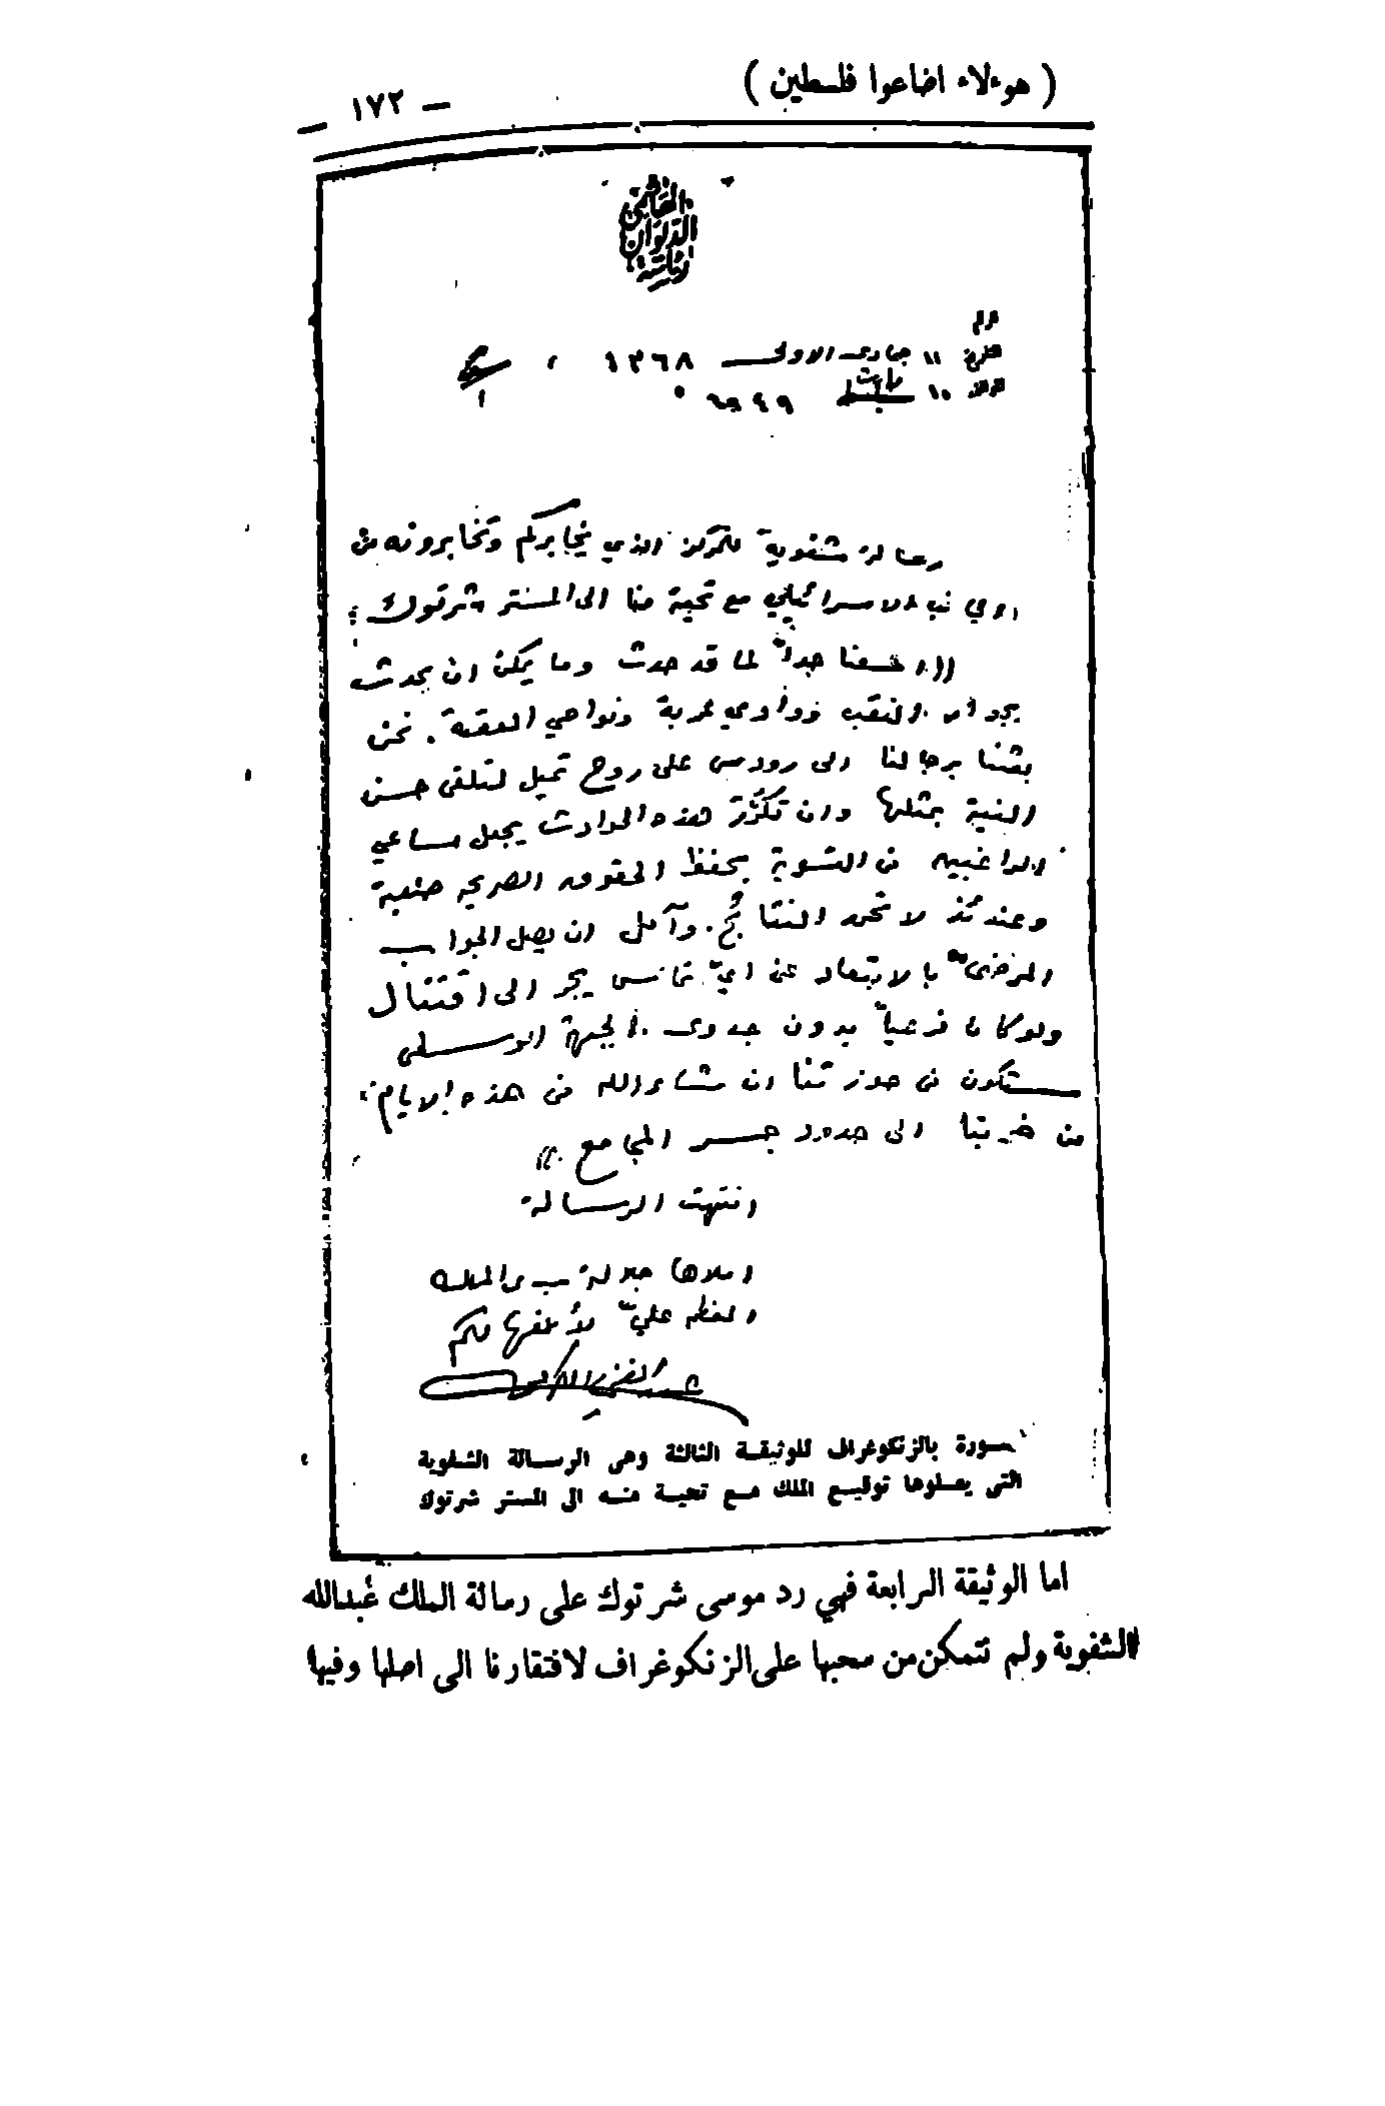 ( هوءلاء اضاعوا فلسطين )
— ١٧٢ —
الهاشمي
الديوان
رئاسة
الرقم
التاريخ ١١ جمادى الاولى ١٣٦٨
الموافق ١٠ مارت ١٩٤٩
رسالة شفوية للمركز الذي يخابركم وتخابرونه من
الجانب الاسرائيلي مع تحية منا الى المستر شرتوك :
((اسفنا جداً لما قد حدث وما يمكن ان يحدث
بجوار النقب ووادي عربة ونواحي العقبة . نحن
بعثنا برجالنا الى رودس على روح تميل لتلقى حسن
النية بمثلها وان تكرّر هذه الحوادث يجعل مساعي
الراغبين في التسوية بحفظ الحقوق الصريحه صعبة
وعندئذ لا تحمد النتائج . وآمل ان يصل الجواب
المرضي بالابتعاد عن ايّ تماس يجر الى اقتتال
ولو كان فرعياً بدون جدوى . الجبهة الوسطى
ستكون في حوزتنا ان شاء الله في هذه الايام
من الى حدود جسر المجامع . ))
انتهت الرسالة
املاها جلالة سيدي الملك
المعظم عليّ لأبلغها لكم
صورة بالزنكوغراف للوثيقة الثالثة وهى الرسالة الشفوية
التى يعلوها توقيع الملك مع تحية منه الى المستر شرتوك
اما الوثيقة الرابعة فهي رد موسى شرتوك على رسالة الملك عبدالله
الشفوية ولم نتمكن من سحبها على الزنكوغراف لافتقارنا الى اصلها وفيها